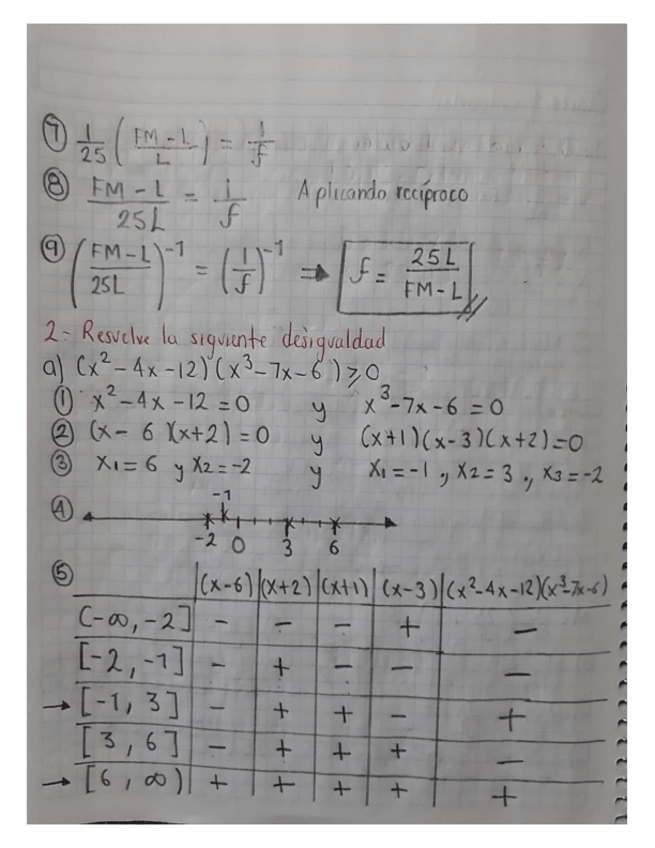 ⑦ 1/25 (FM-L/L) = 1/f
⑧ FM-L/25L = 1/f Aplicando recíproco
⑨ (FM-L/25L)^-1 = (1/f)^-1 ⇒ f = 25L/FM-L
2- Resuelve la siguiente desigualdad
a) (x²-4x-12)(x³-7x-6)≥0
① x²-4x-12=0 y x³-7x-6=0
② (x-6)(x+2)=0 y (x+1)(x-3)(x+2)=0
③ x₁=6 y x₂=-2 y x₁=-1, x₂=3, x₃=-2
④ -2 -1 0 3 6
⑤ (x-6) (x+2) (x+1) (x-3) (x²-4x-12)(x³-7x-6)
(-∞,-2] - - - + -
[-2,-1] - + - - -
→ [-1,3] - + + - +
[3,6] - + + + -
→ [6,∞) + + + + +